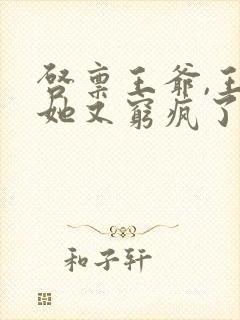 启禀王爷,王
她又窮疯了
和子轩